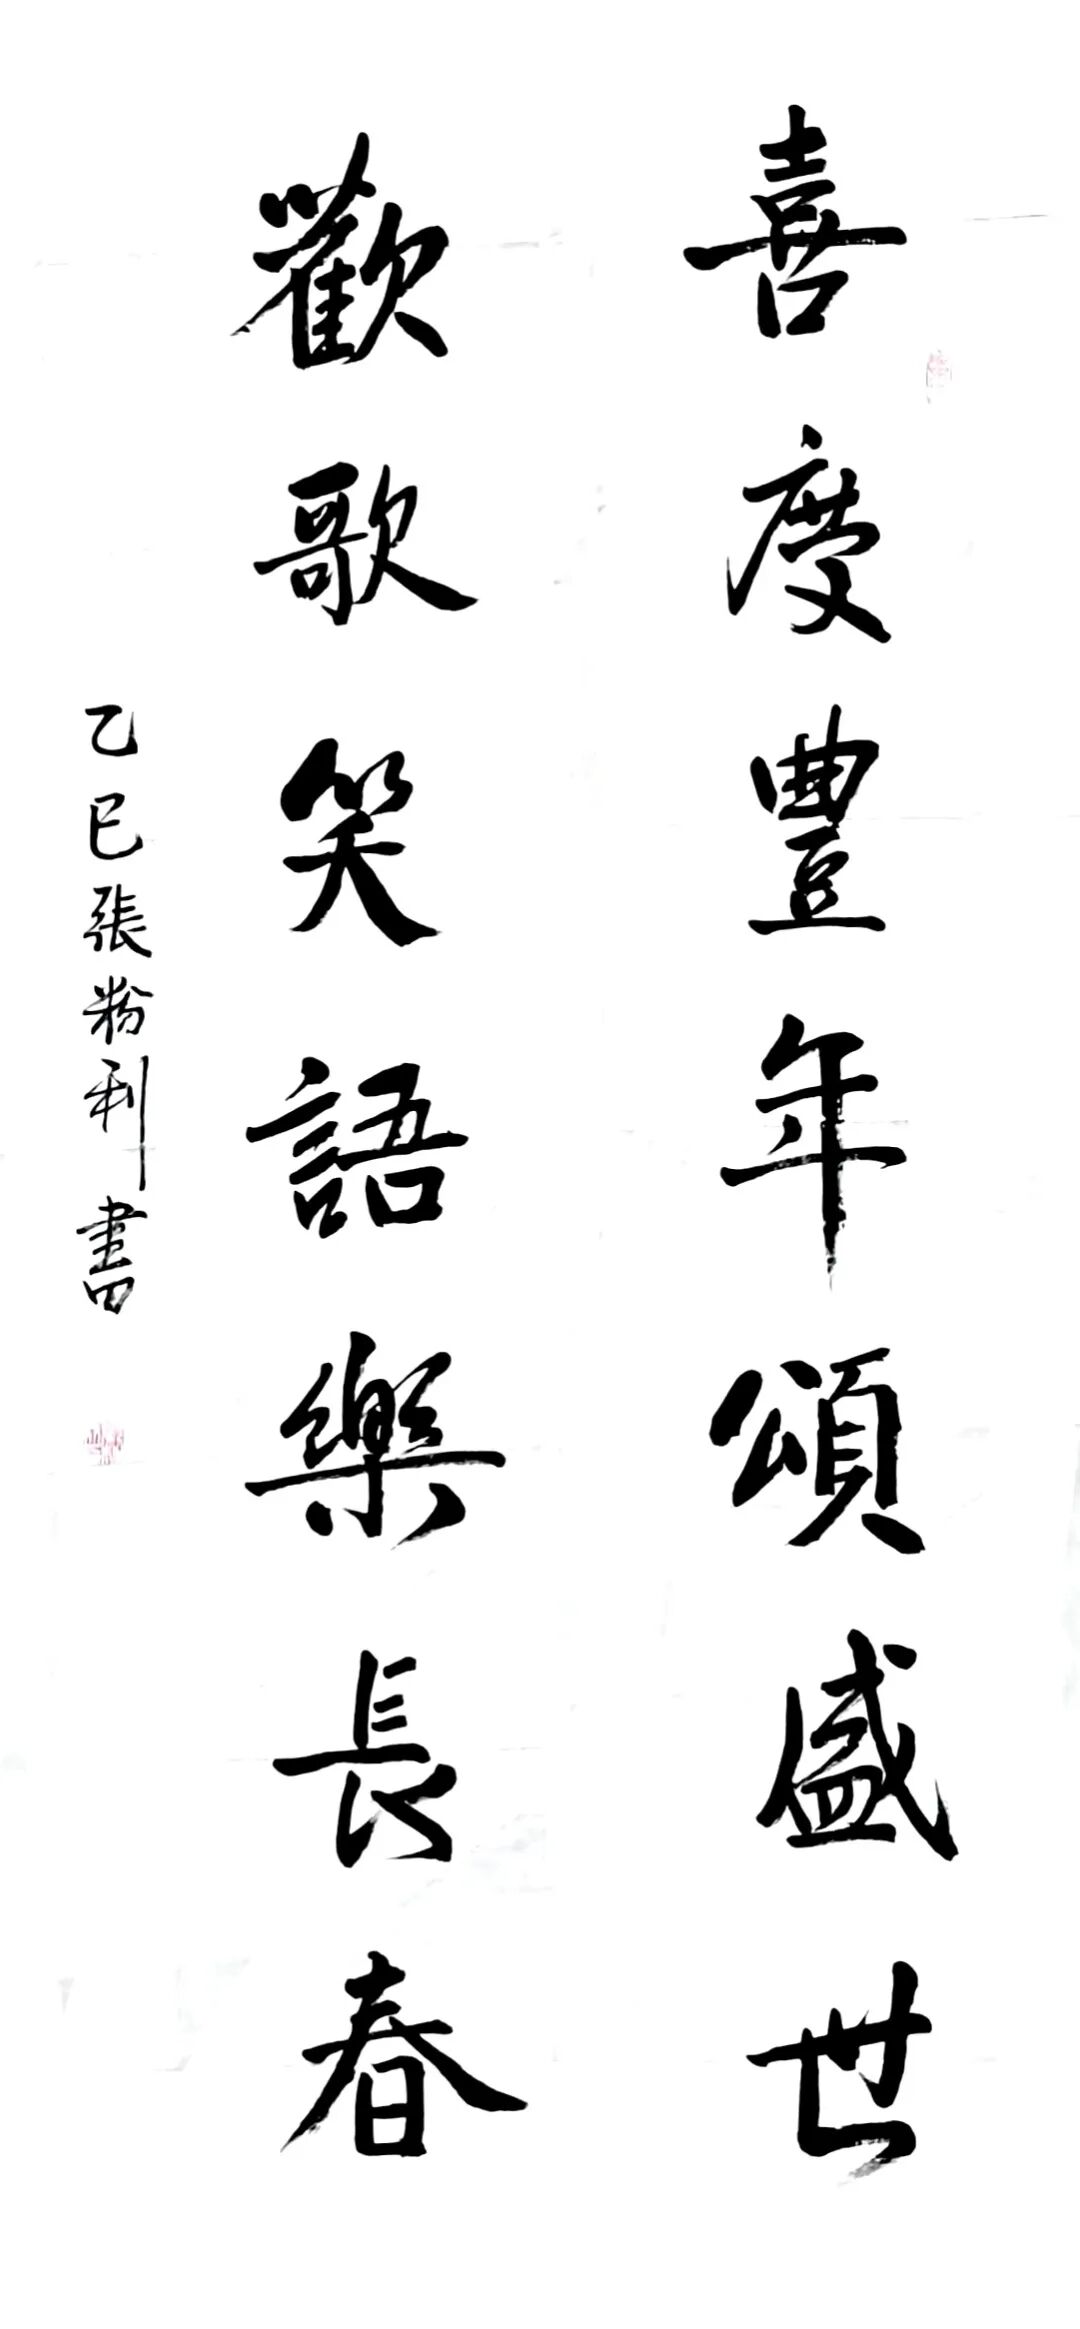 喜度豐年頌盛世
歡歌笑語樂長春
乙巳張粉利書